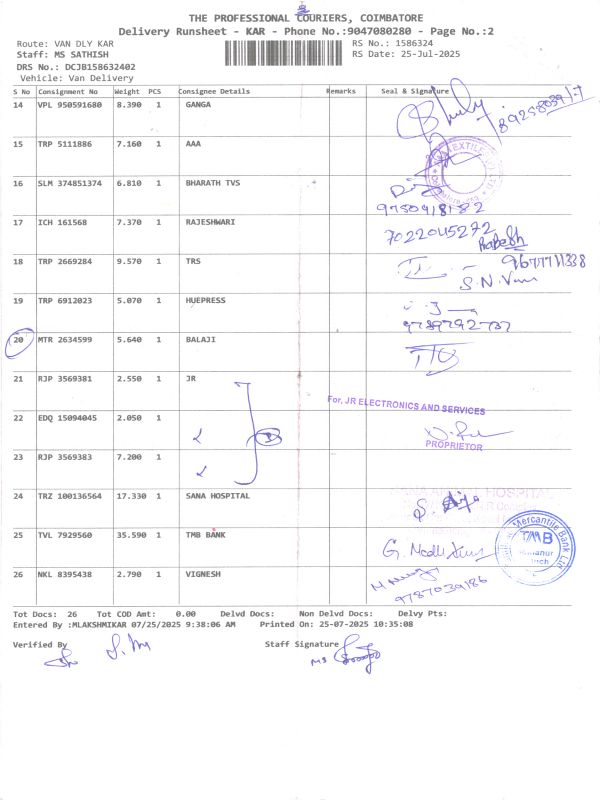 THE PROFESSIONAL COURIERS, COIMBATORE
Delivery Runsheet - KAR - Phone No.:9047080280 - Page No.:2
Route: VAN DLY KAR RS No.: 1586324
Staff: MS SATHISH RS Date: 25-Jul-2025
DRS No.: DCJB158632402
Vehicle: Van Delivery
S No Consignment No Weight PCS Consignee Details Remarks Seal & Signature
14 VPL 950591680 8.390 1 GANGA
15 TRP 5111886 7.160 1 AAA
16 SLM 374851374 6.810 1 BHARATH TVS
9750418182
17 ICH 161568 7.370 1 RAJESHWARI 7022045272
18 TRP 2669284 9.570 1 TRS 9677711338
S.N.
19 TRP 6912023 5.070 1 HUEPRESS
20 MTR 2634599 5.640 1 BALAJI
21 RJP 3569381 2.550 1 JR
For, JR ELECTRONICS AND SERVICES
22 EDQ 15094045 2.050 1
PROPRIETOR
23 RJP 3569383 7.200 1
24 TRZ 100136564 17.330 1 SANA HOSPITAL
HOSPITAL
25 TVL 7929560 35.590 1 TMB BANK
Mercantile Bank Ltd
TMB
26 NKL 8395438 2.790 1 VIGNESH
9787039186
Tot Docs: 26 Tot COD Amt: 0.00 Delvd Docs: Non Delvd Docs: Delvy Pts:
Entered By :MLAKSHMIKAR 07/25/2025 9:38:06 AM Printed On: 25-07-2025 10:35:08
Verified By Staff Signature
MS